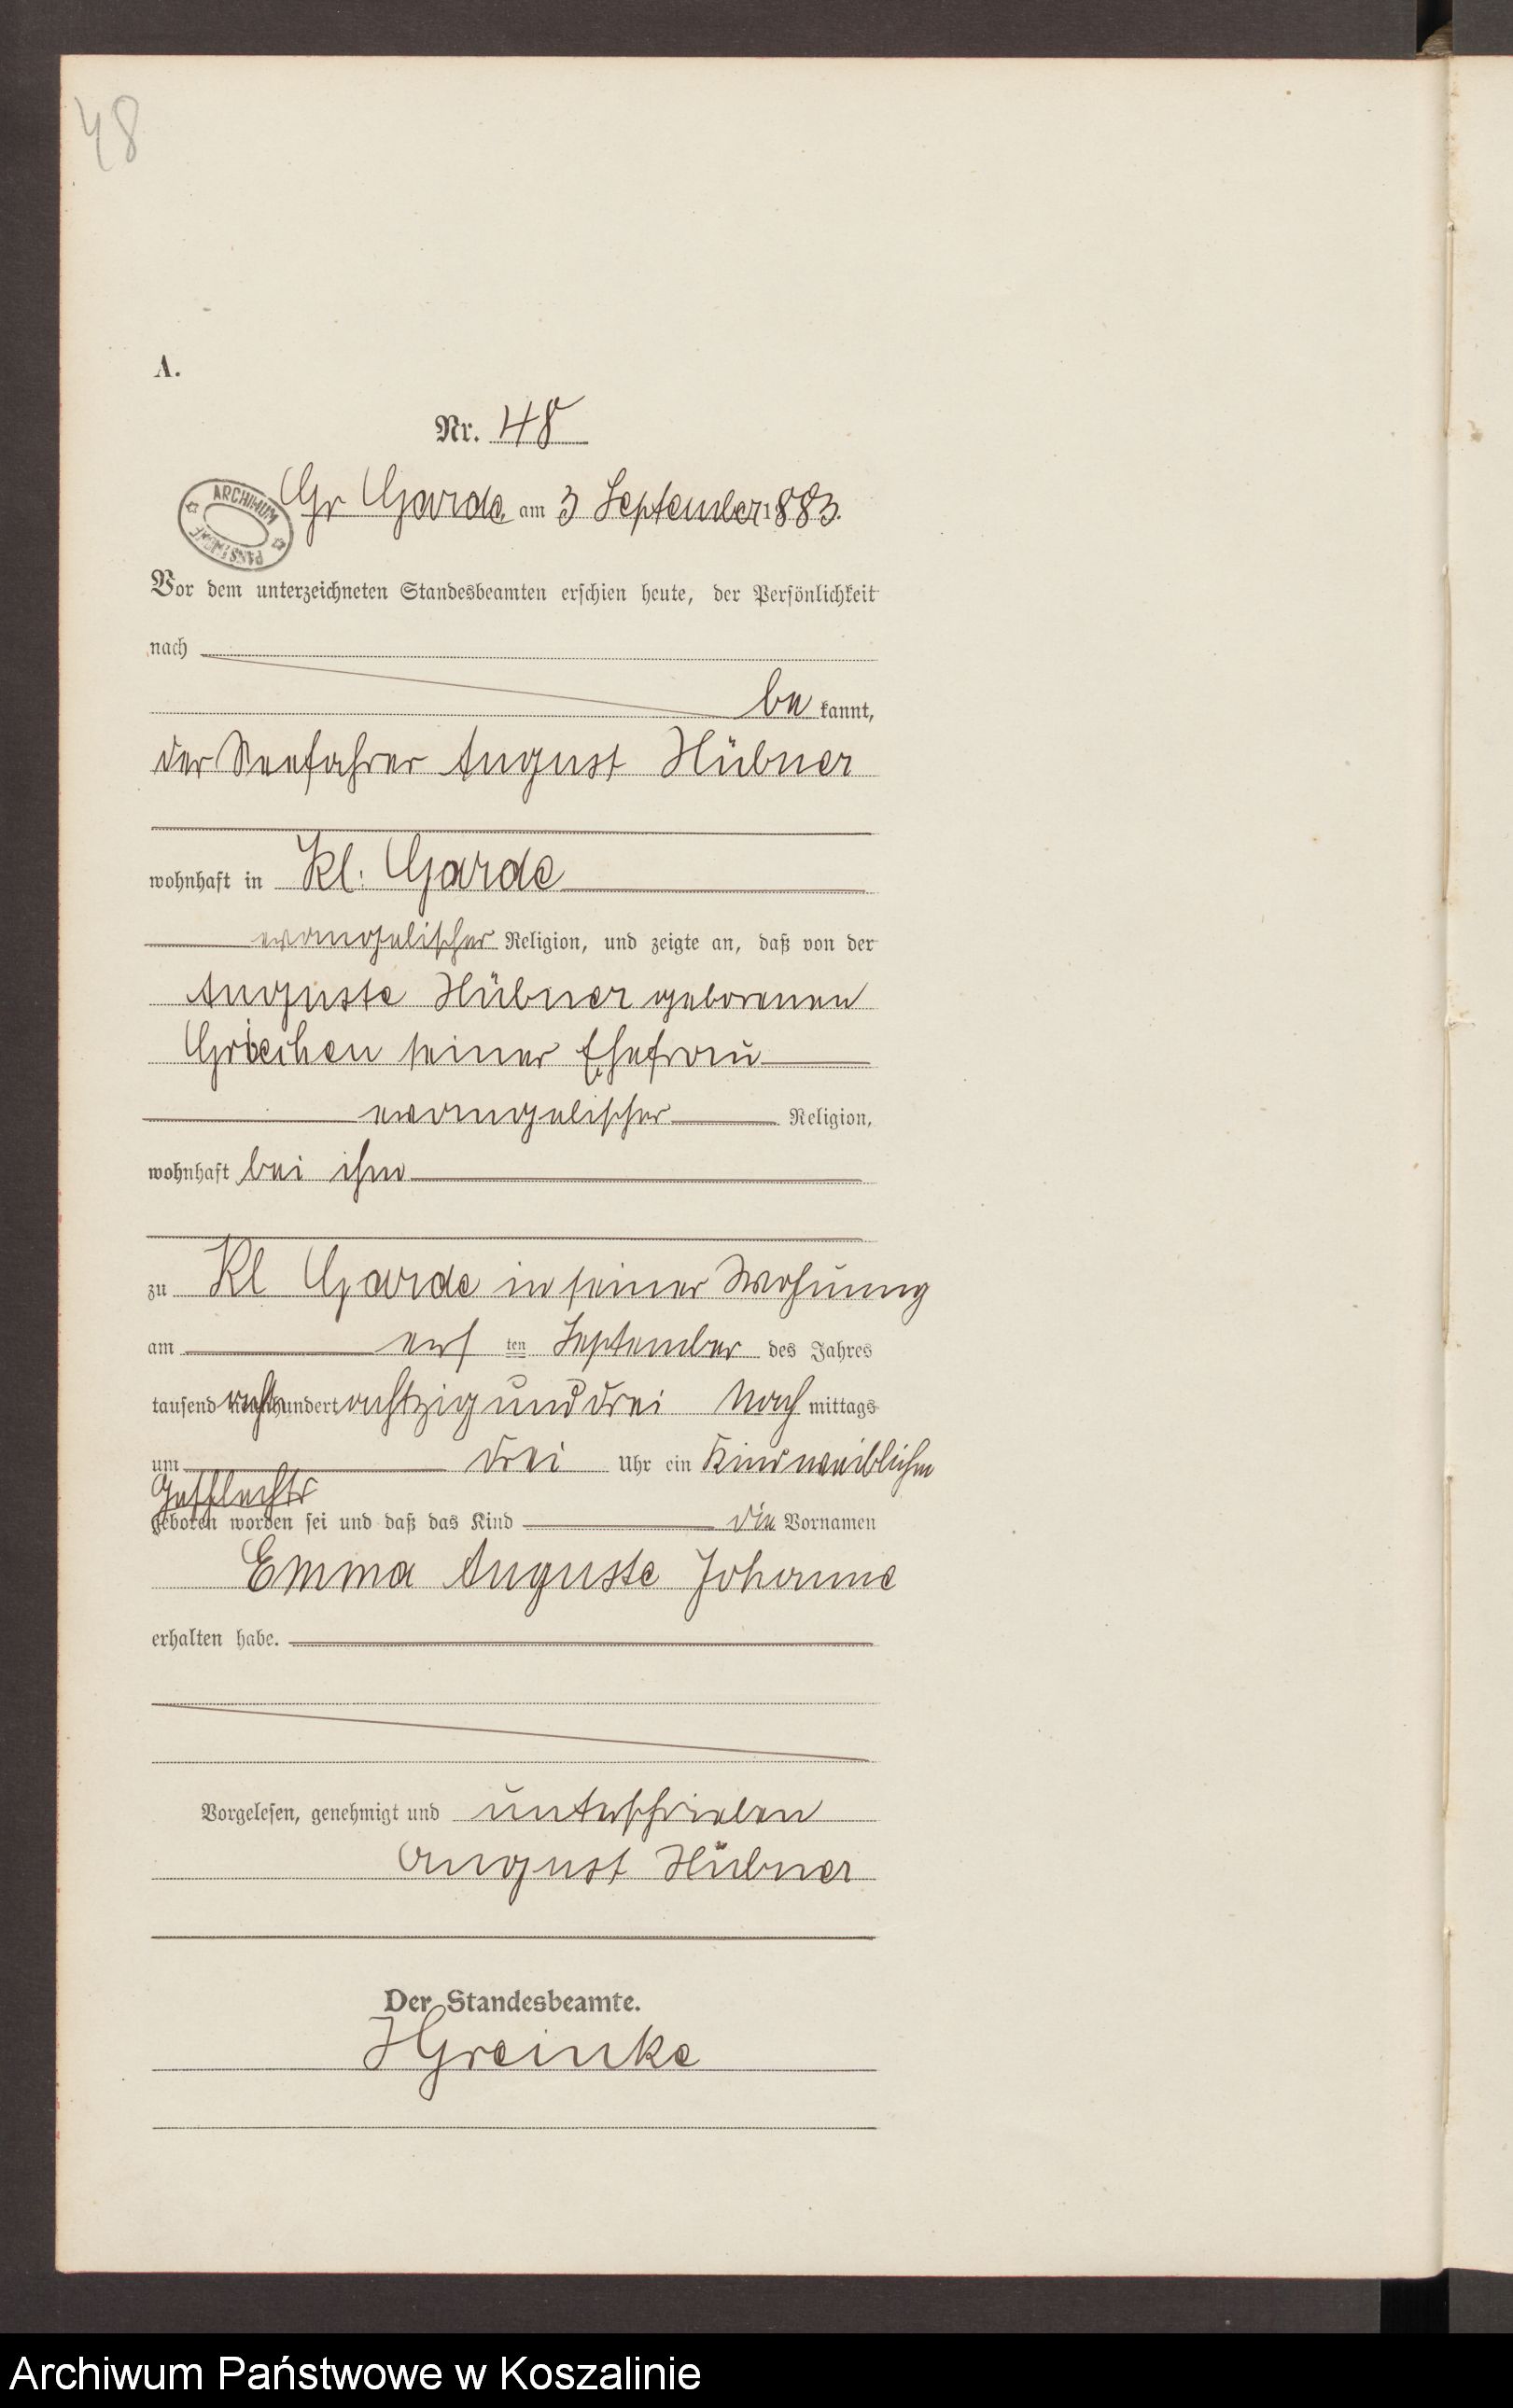 48
A.
Nr. 48
ARCHIWUM PAŃSTWOWE
Gr Garde, am 3 September 1883.
Vor dem unterzeichneten Standesbeamten erschien heute, der Persönlichkeit
nach
be kannt,
der Seefahrer August Hübner
wohnhaft in Kl. Garde
evangelischer Religion, und zeigte an, daß von der
Auguste Hübner geborenen
seiner Ehefrau
evangelischer Religion,
wohnhaft bei ihm
zu Kl Garde in seiner Wohnung
am ten September des Jahres
tausend acht hundert achtzig und drei Nach mittags
um drei Uhr ein Kind weiblichen
Geschlechts
geboren worden sei und daß das Kind die Vornamen
Emma Auguste Johanne
erhalten habe.
Vorgelesen, genehmigt und unterschrieben
August Hübner
Der Standesbeamte.
HGreinke
Archiwum Państwowe w Koszalinie